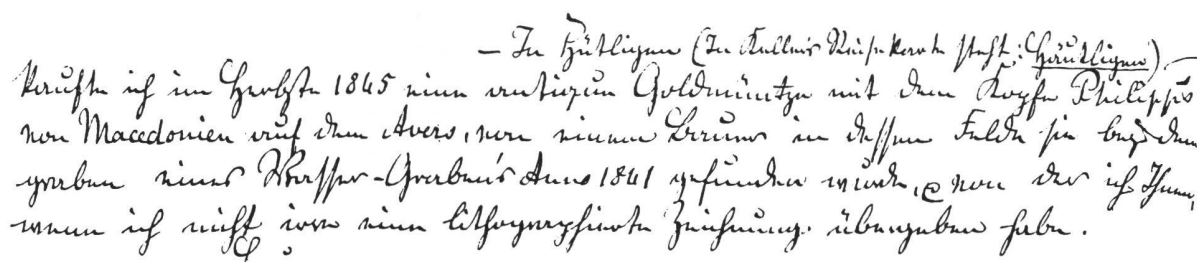 – In Hütligen (In Kellers Reisekarte steht: Häutligen)
kaufte ich im Herbste 1845 eine antique Goldmüntze mit dem Kopfe Philipps
von Macedonien auf dem Avers, von einem Bauer in dessen Felde sie bey dem
graben eines Wasser-Graben's Anno 1841 gefunden wurde, & von der ich Ihnen,
wenn ich nicht irre eine lithographierte Zeichnung übergeben habe.